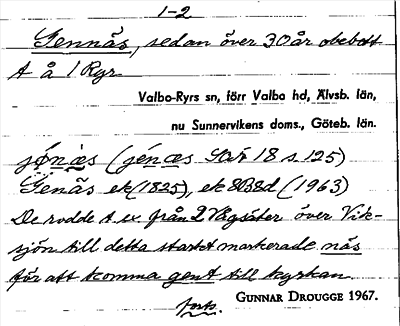 1-2
Gennäs, sedan över 30 år obebott
t å 1 Rgr.
Valbo-Ryrs sn, förr Valbo hd, Älvsb. län,
nu Sunnervikens doms., Göteb. län.
jø̀næ̀s (jénæs SOÄ 18 s. 125)
Genäs ek (1825), ek 8B8d (1963)
De rodde t ex från 2 Vägsäter över Vik-
sjön till detta starkt markerade näs
för att komma gent till kyrkan.
forts.
GUNNAR DROUGGE 1967.